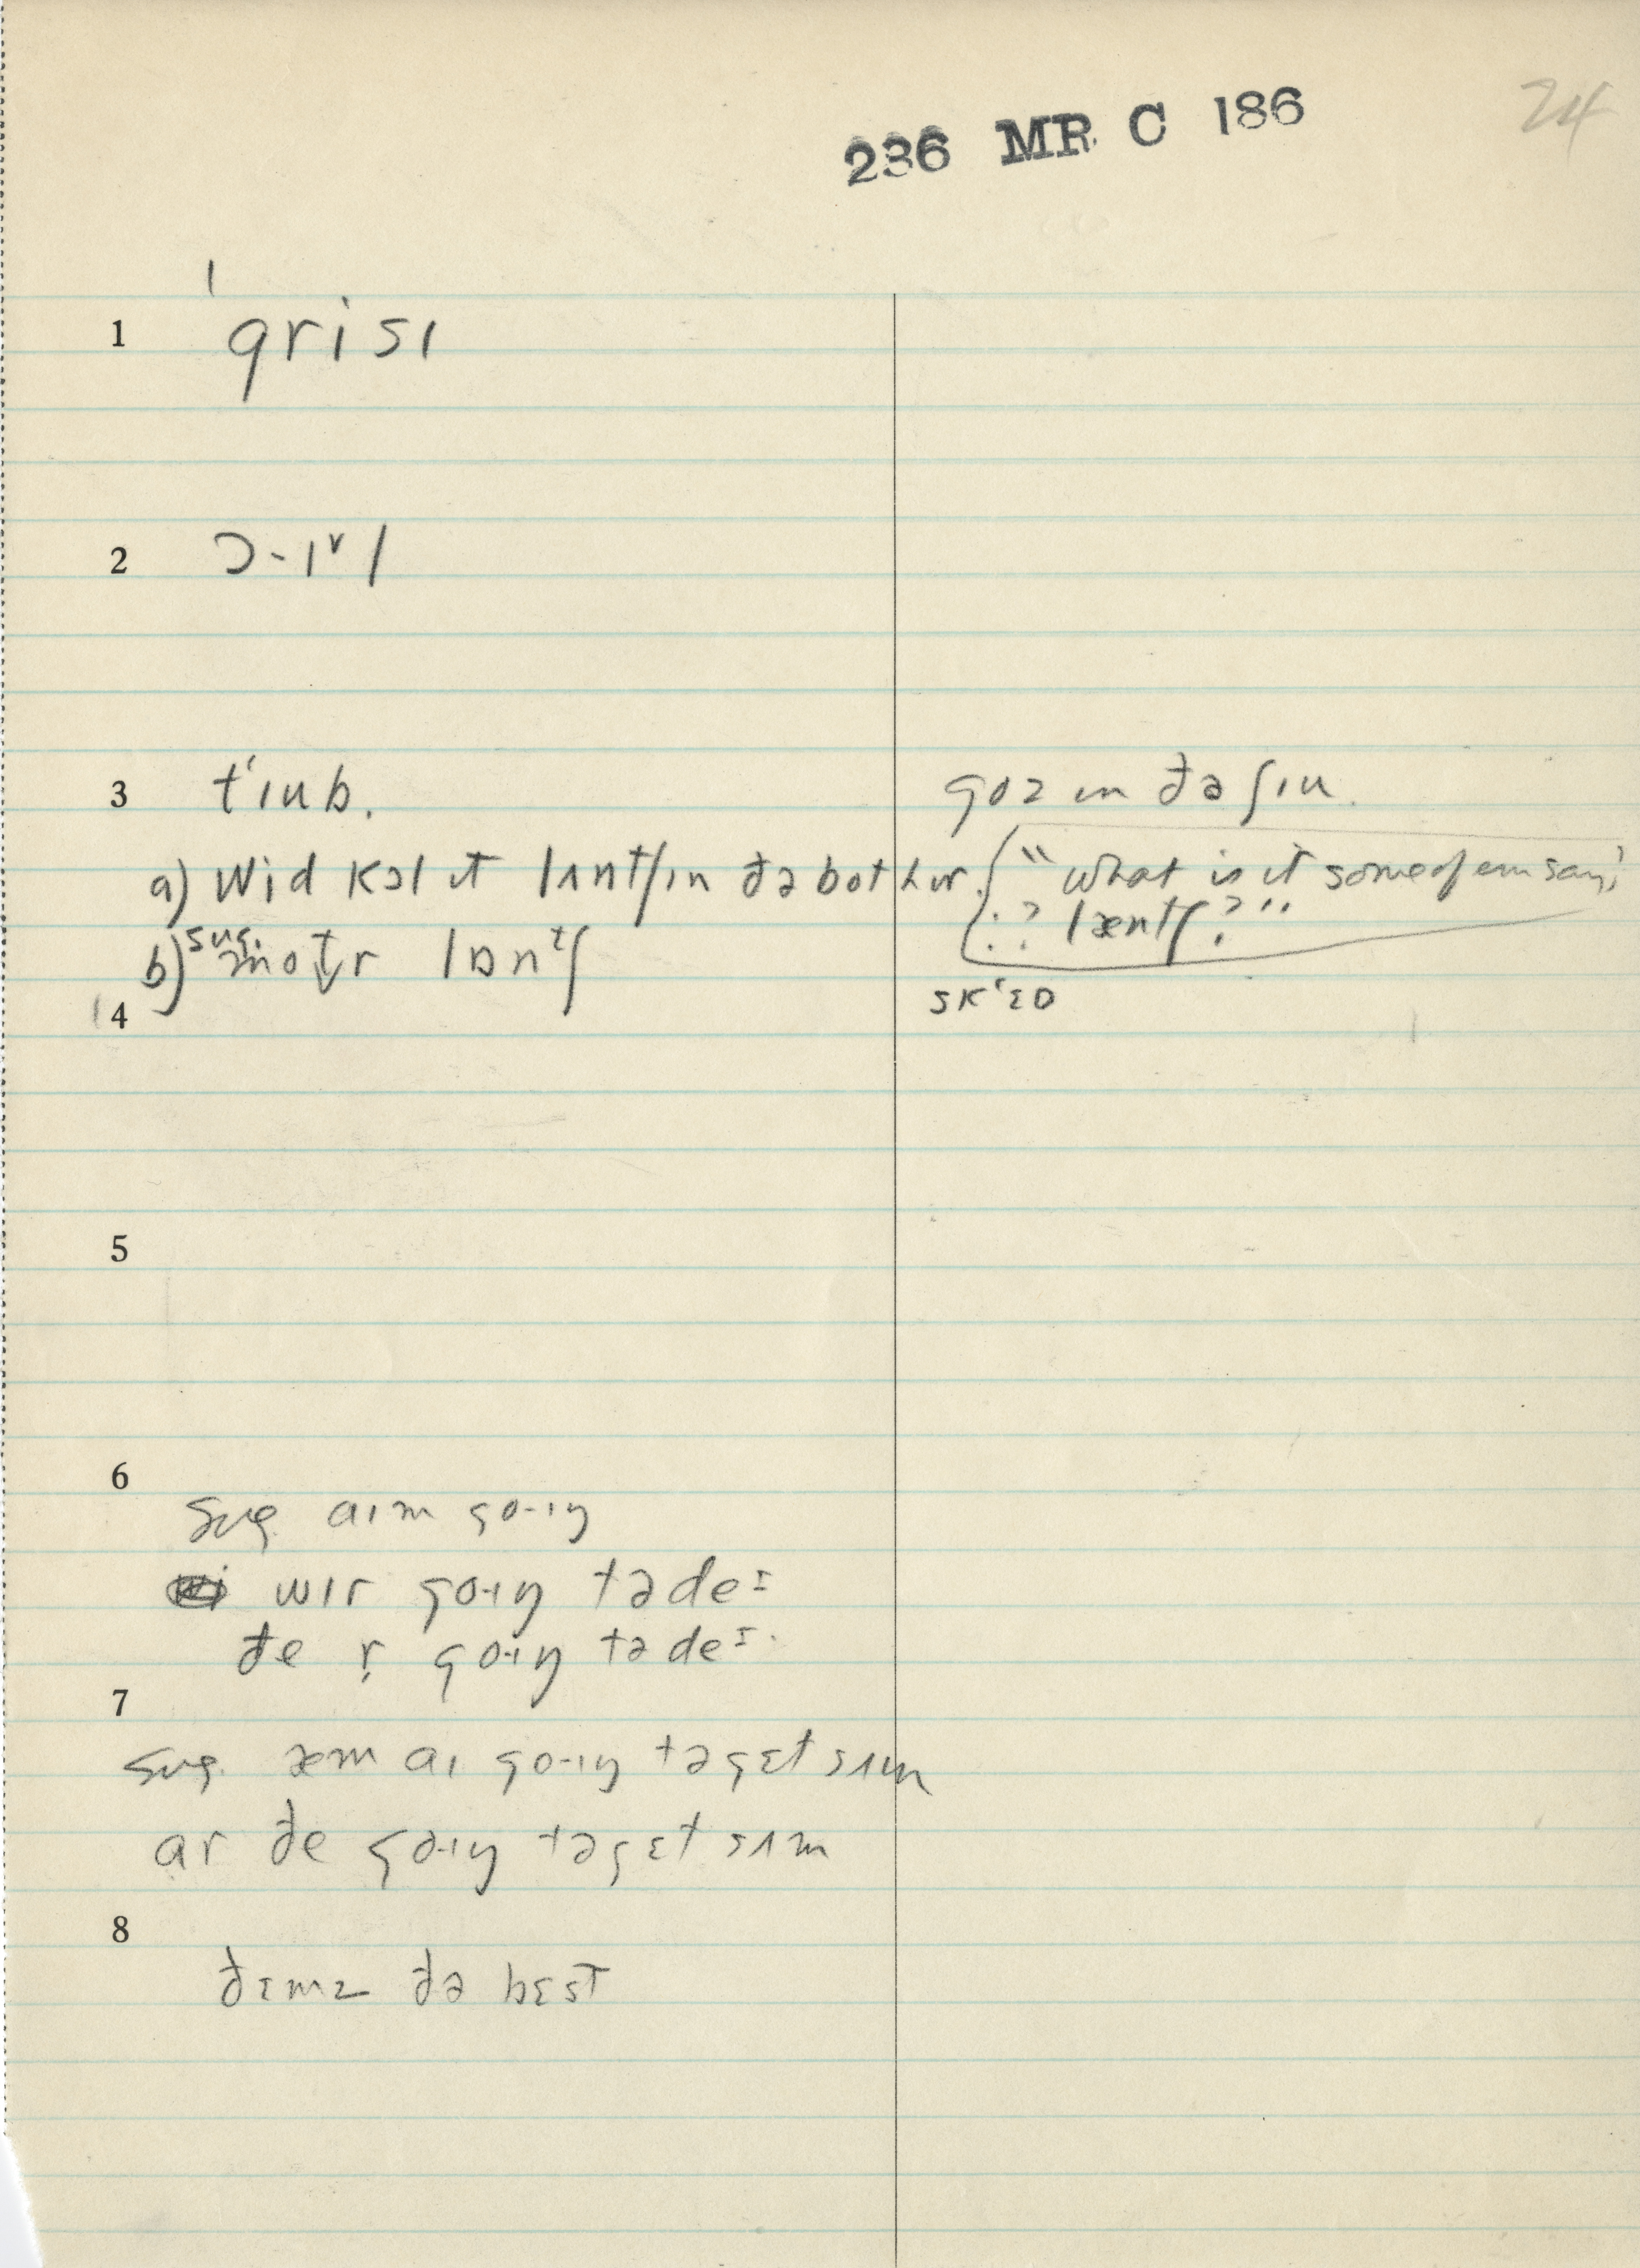 236 MR C 186
24
1 ˈgrisɪ
2 ɔ-ɪ˅l
3 tʻɪub. goz ɪn ðə ʃɪu.
a) wid kɔl ɪt lʌntʃɪn ðə bot hɪr. "what is it some of em say,
? læntʃ?"
b) sug. motr lɒnᵗʃ
4 skʻɛɒ
5
6
sug. aɪm go-ɪŋ
wɪr go-ɪŋ tə deᶦ
ðe r̩ go-ɪŋ tə deᶦ.
7
sug. æm aɪ go-ɪŋ tə gɛt sʌm
ar ðe go-ɪŋ tə gɛt sʌm
8
ðɛmz ðə bɛst